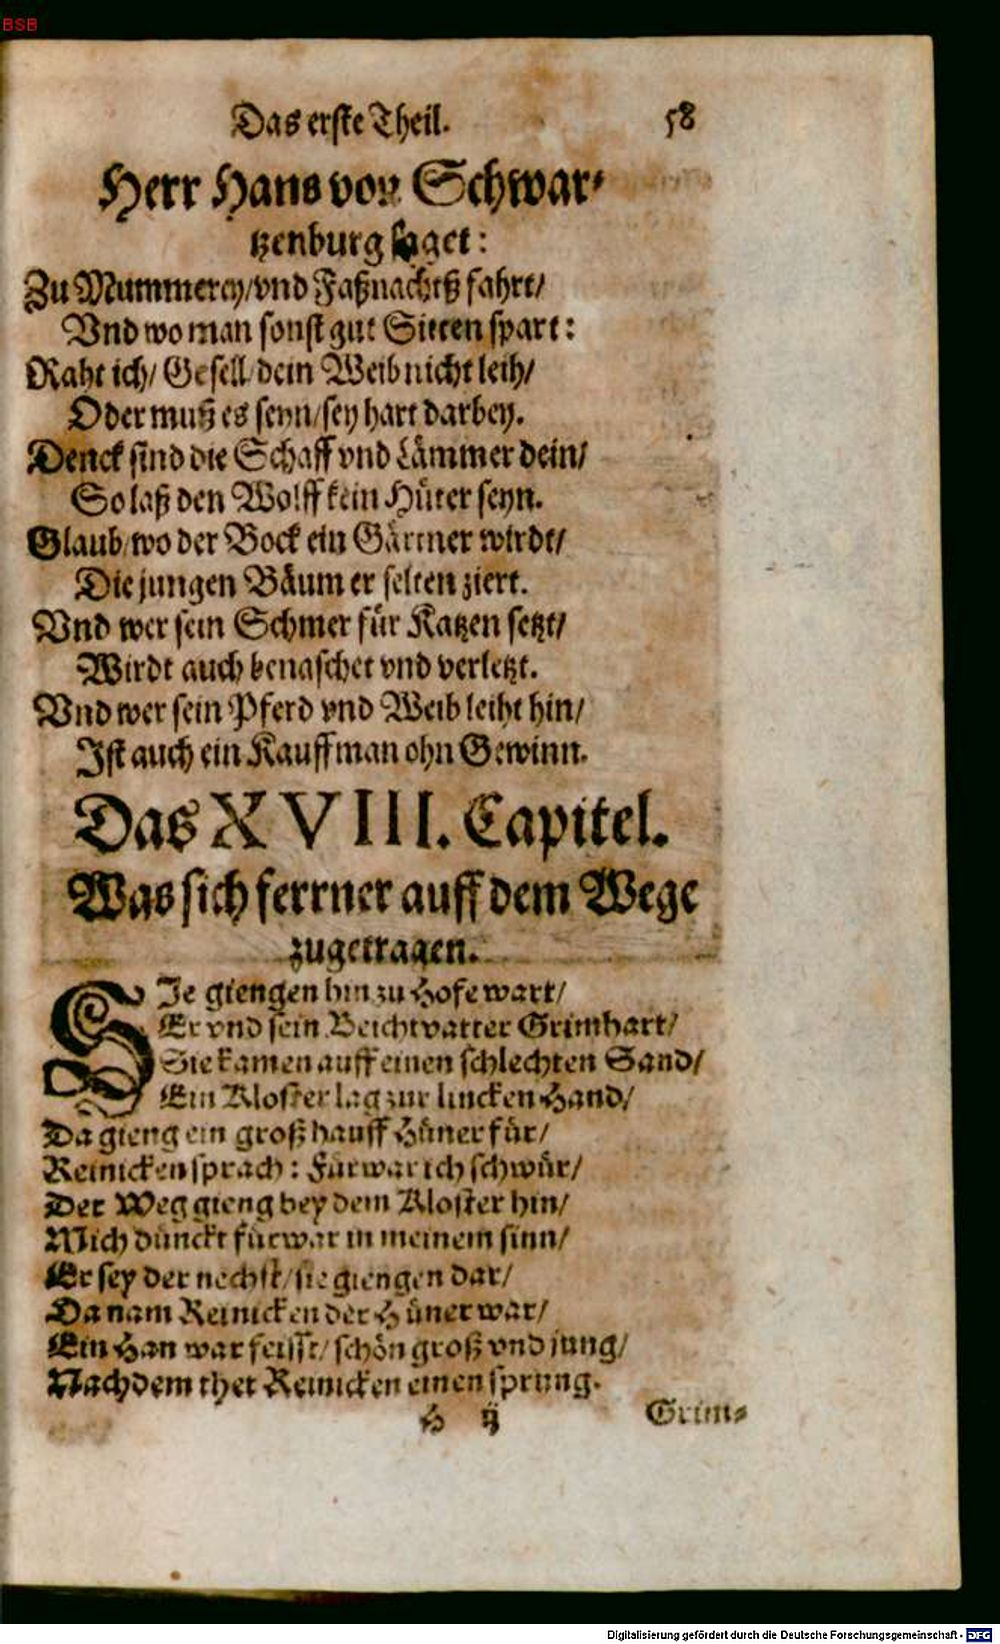 BSB
Das erste Theil. 58
Herr Hans von Schwar⸗
tzenburg saget:
Zu Mummerey/vnd Faßnachtß fahrt/
Vnd wo man sonst gut Sitten spart:
Raht ich/ Gesell/dein Weib nicht leih/
Oder muß es seyn/sey hart darbey.
Denck sind die Schaff vnd Lämmer dein/
So laß den Wolff kein Hüter seyn.
Glaub/wo der Bock ein Gärtner wirdt/
Die jungen Bäum er selten ziert.
Vnd wer sein Schmer für Katzen setzt/
Wirdt auch benaschet vnd verletzt.
Vnd wer sein Pferd vnd Weib leiht hin/
Ist auch ein Kauffman ohn Gewinn.
Das XVIII. Capitel.
Was sich ferrner auff dem Wege
zugetragen.
SIe giengen hin zu Hofe wart/
Er vnd sein Beichtvatter Grimhart/
Sie kamen auff einen schlechten Sand/
Ein Kloster lag zur lincken Hand/
Da gieng ein groß hauff Hüner für/
Reinicken sprach: Fürwar ich schwür/
Der Weg gieng bey dem Kloster hin/
Mich dünckt fürwar in meinem sinn/
Er sey der nechst/sie giengen dar/
Da nam Reinicken der Hüner war/
Ein Han war feisst/schön groß vnd jung/
Nach dem thet Reinicken einen sprung.
H ij Grim⸗
Digitalisierung gefördert durch die Deutsche Forschungsgemeinschaft - DFG